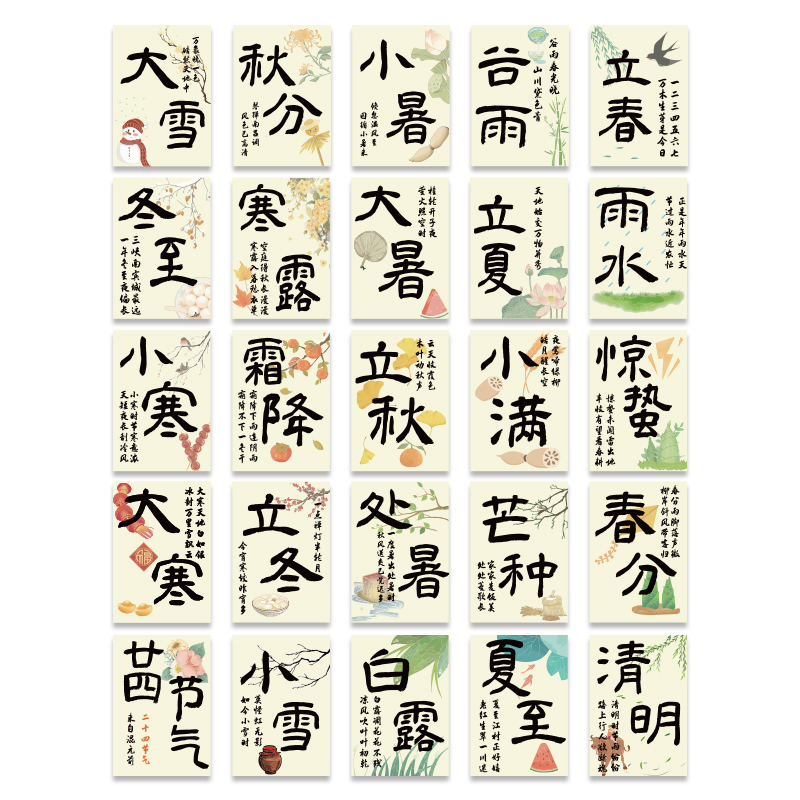 大雪
万象晓一色
皓然天地中
秋分
琴弹南吕调
风色已高清
小暑
倏忽温风至
因循小暑来
谷雨
谷雨春光晓
山川黛色青
立春
一二三四五六七
万木生芽是今日
冬至
三峡南宾城最远
一年冬至夜偏长
寒露
空庭得秋长漫漫
寒露入暮愁衣单
大暑
桂轮开子夜
萤火照空时
立夏
天地始交万物并秀
雨水
正是年年雨水天
节过雨水近农忙
小寒
小寒时节寒意浓
天短夜长刮冷风
霜降
霜降下雨连阴雨
霜降不下一冬干
立秋
云天收夏色
木叶动秋声
小满
夜莺啼绿柳
皓月醒长空
惊蛰
惊蛰未闻雷出地
丰收有望看春耕
大寒
大寒天地白如银
冰封万里雪飘云
立冬
一点禅灯半轮月
今宵寒较昨宵多
处暑
一度暑出处暑时
秋风送爽已觉迟
芒种
家家麦饭美
处处菱歌长
春分
春分雨脚落声微
柳岸斜风带客归
廿四节气
二十四节气
来自混元前
小雪
莫怪虹无影
如今小雪时
白露
白露凋花花不残
凉风吹叶叶初乾
夏至
夏至江村正好嬉
清明
清明时节雨纷纷
路上行人欲断魂